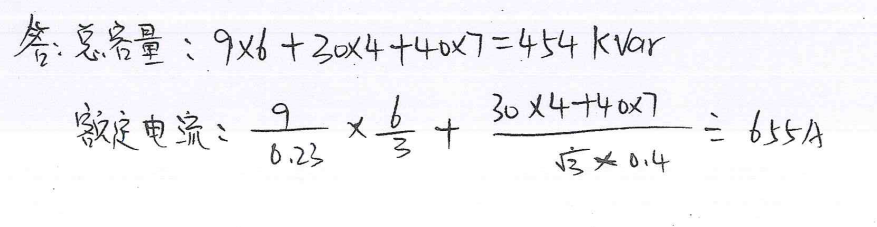 答:总容量:9×6+30×4+40×7=454 KVar
额定电流:9/0.23 × 6/3 + (30×4+40×7)/(√3×0.4) ≐ 655A